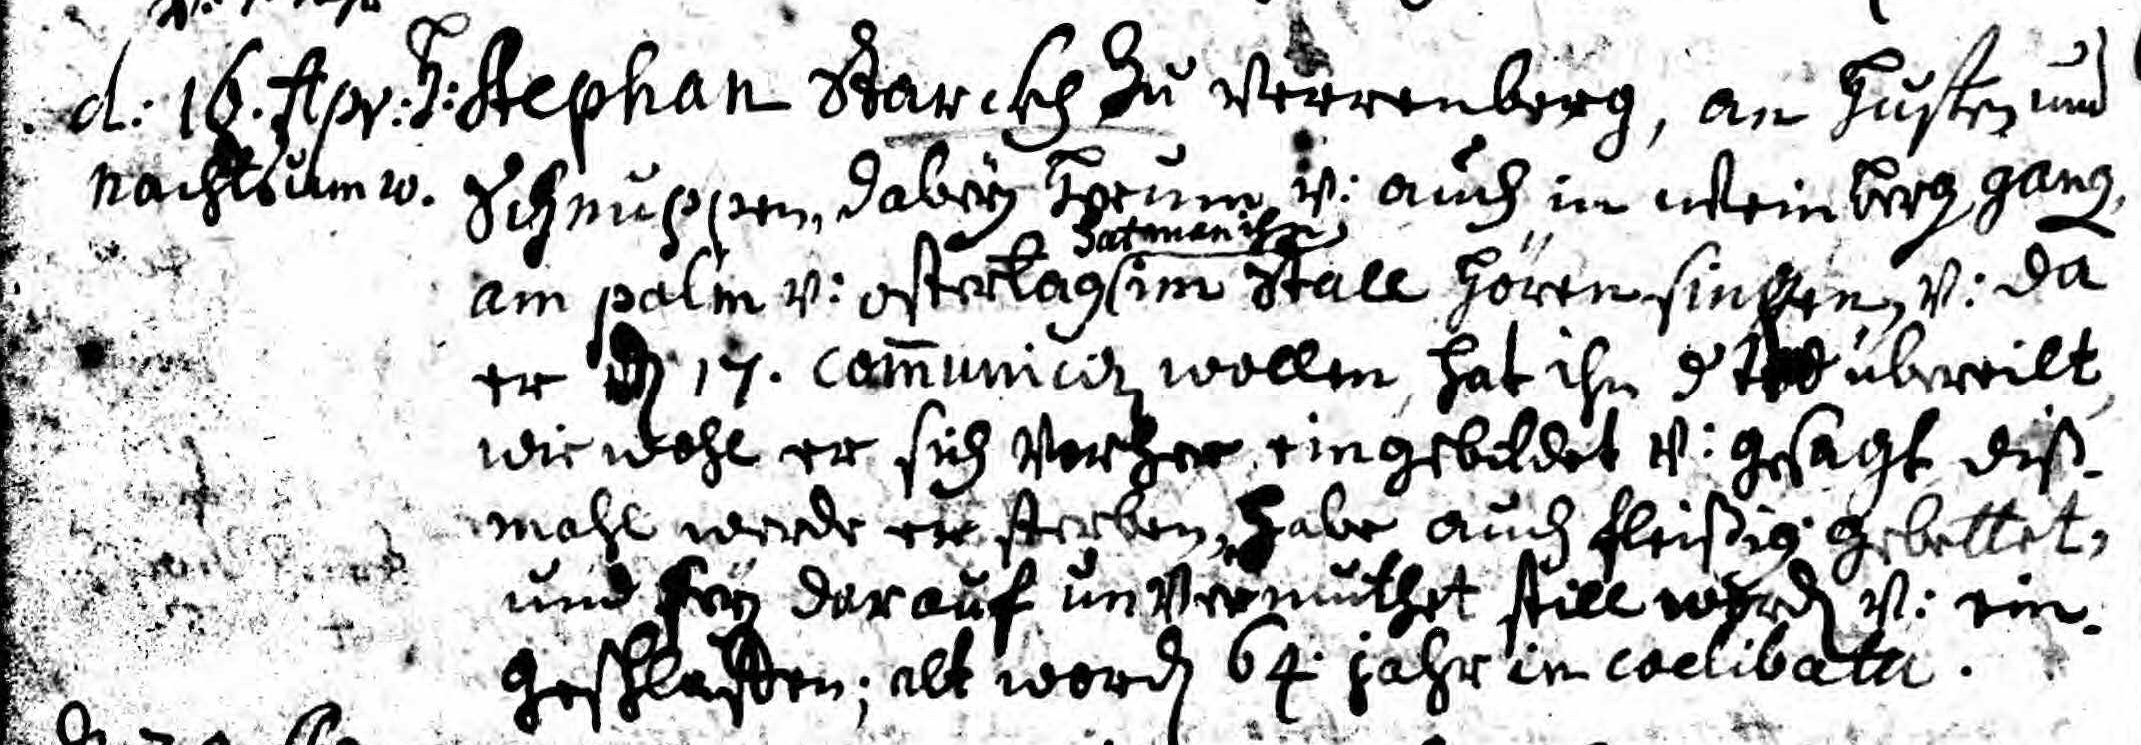 d: 16. Apr: H: Stephan Starckh zu Verrenberg, an Husten und
nachts um w. Schnuppen, dabeÿ herum v: auch in Weinberg gang,
hat man ihn
am palm v: ostertag im Stall hören singen, v: da
er dh 17. com̄unicirn wollen, hat ihn d Tod übereilt,
wie wohl er sich vorher eingebildet v: gesagt diß-
mahl werde er sterben, habe auch fleißig gebettet,
und seÿ darauf unvermuthet still word v: ein-
geschlaffen; alt word 64. jahr in coelibatu.